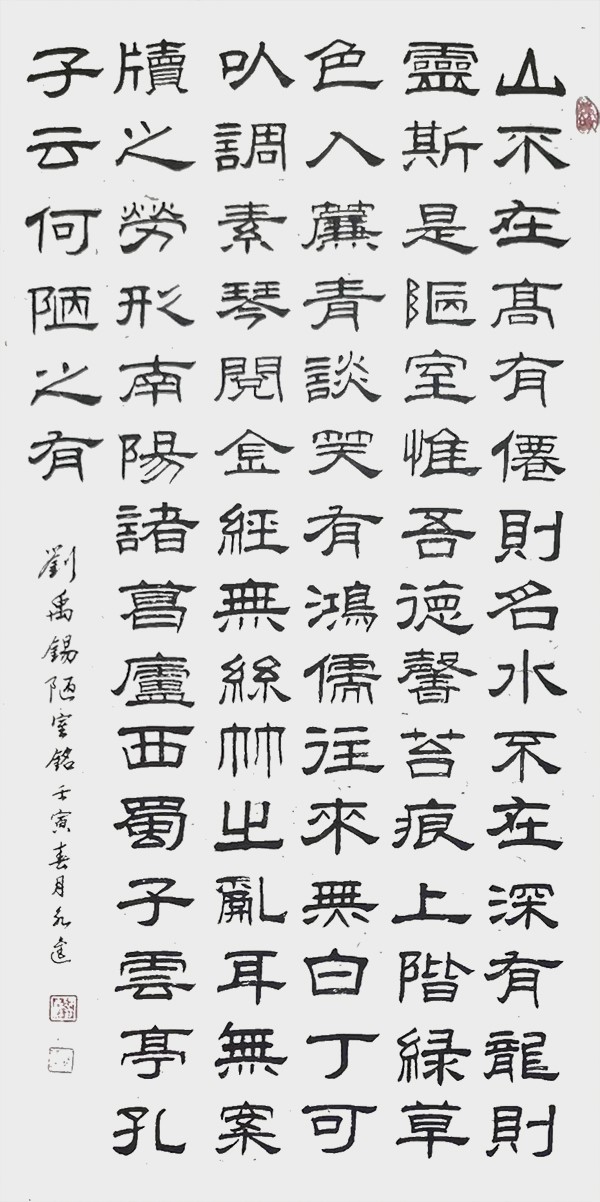 山不在高有僊則名水不在深有龍則
靈斯是陋室惟吾德馨苔痕上階緑草
色入簾青談笑有鴻儒往來無白丁可
以調素琴閱金經無絲竹之亂耳無案
牘之勞形南陽諸葛廬西蜀子雲亭孔
子云何陋之有
劉禹錫陋室銘壬寅春月